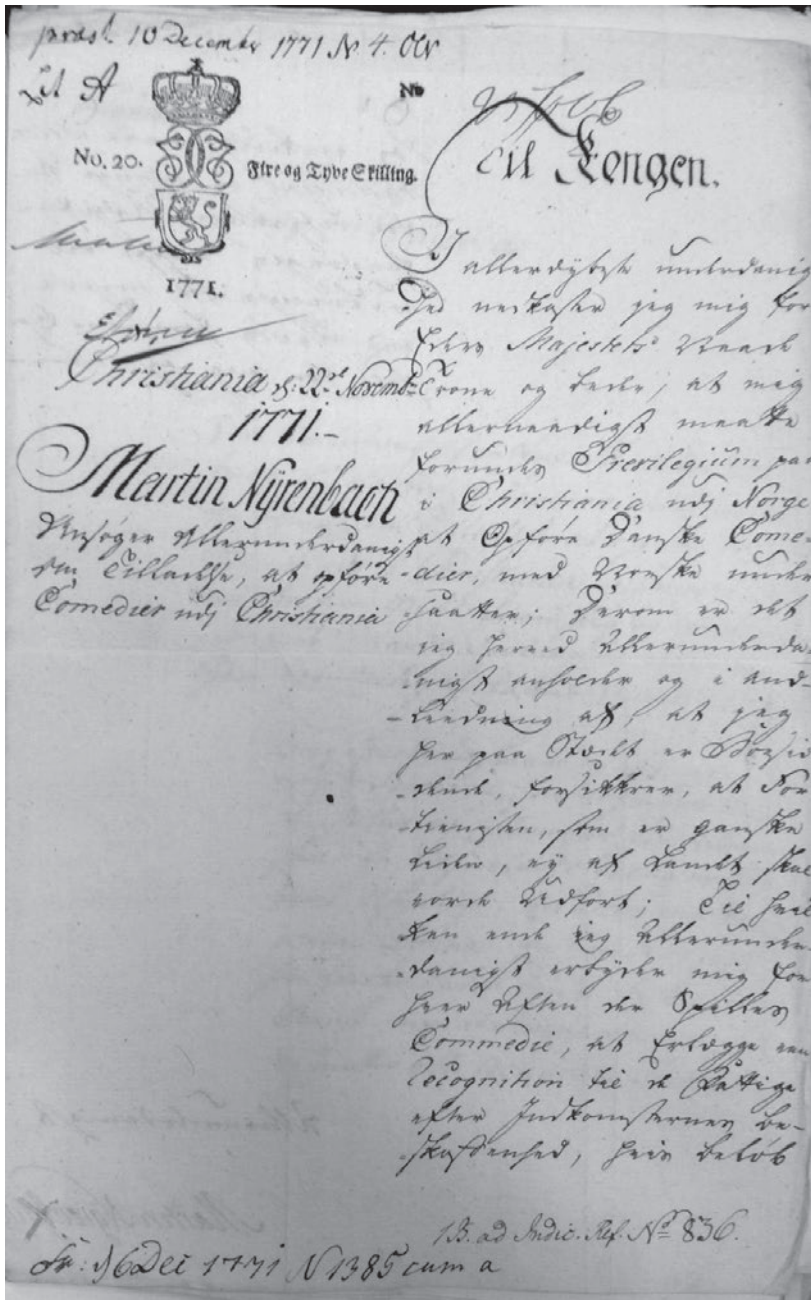 præst. 10 December 1771 N 4.
Lit A
No
No. 20.
Fire og Tyve Skilling.
1771.
Christiania, d: 22de Novembr
1771.-
Martin Nÿrenbach
Ansøger Allerunderdanigst
om Tilladelse, at opføre
Comedier udj Christiania
Til Kongen.
I allerdybeste underdanig
hed nedkaster jeg mig for
Eders Majestets Naade
Trone og beder, at mig
allernaadigst maatte
forundes Previlegium paa
i Christiania udj Norge
at Opføre Danske Come-
-dier, med Norske under
saatter; Derom er det
jeg herved Allerunderda-
-nigst anholder og i And-
-leedning af, at jeg
her paa Stædet er Boesid
-dende, forsikkrer, at For
-tienisten, som er ganske
liden, ey af Landet skal
vorde Udført; Til hvil
ken ende jeg Allerunder-
-danigst erbyder mig for
hver Aften der Spilles
Commedie, at Erlægge een
Recognition til de Fattige
efter Indkomsternes be-
-skaffenhed, hvis beløb
1B. ad Indic. Ref. No 836.
16 Dec 1771 N 1385 cum a